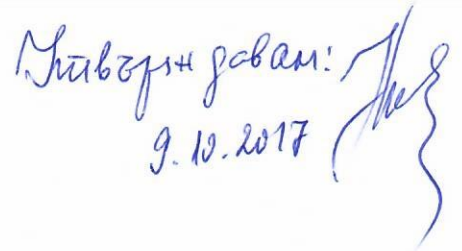 Утвърждавам:
9.10.2017